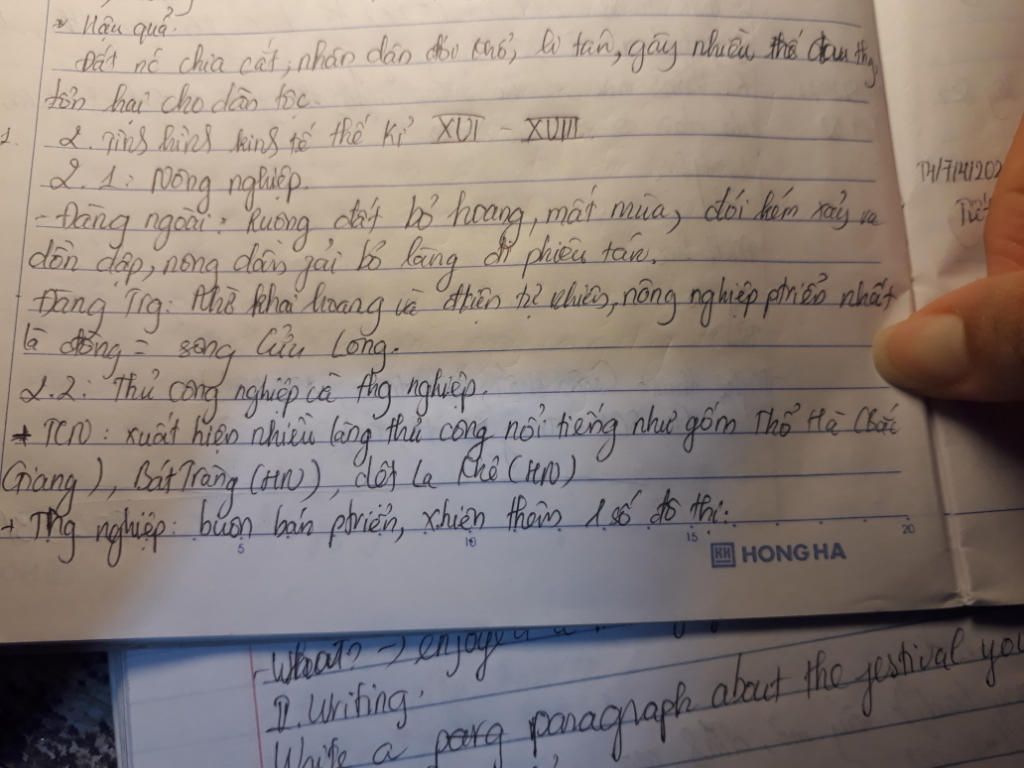 * Hậu quả.
Đất nc chia cắt, nhân dân đói khổ, li tán, gây nhiều
tổn hại cho dân tộc.
2. Tình hình kinh tế thế kỉ XVI - XVIII
2.1: Nông nghiệp.
- Đàng ngoài: Ruộng đất bỏ hoang, mất mùa, đói kém xảy ra
dồn dập, nông dân phải bỏ làng đi phiêu tán.
Đàng Trg: Nhờ khai hoang và điện tự nhiên, nông nghiệp ptriển nhất
là đồng = sông Cửu Long.
2.2: Thủ công nghiệp và thg nghiệp.
+ TCN: xuất hiện nhiều làng thủ công nổi tiếng như gốm Thổ Hà (Bắc
Giang), Bát Tràng (HN), dệt La Khê (HN)
+ Thg nghiệp: buôn bán ptriển, xhiện thêm 1 số đô thị:
5 10 15 20
HONG HA
T4/7/4/202
- What? → enjoy
II. Writing.
Write a parg paragraph about the festival you